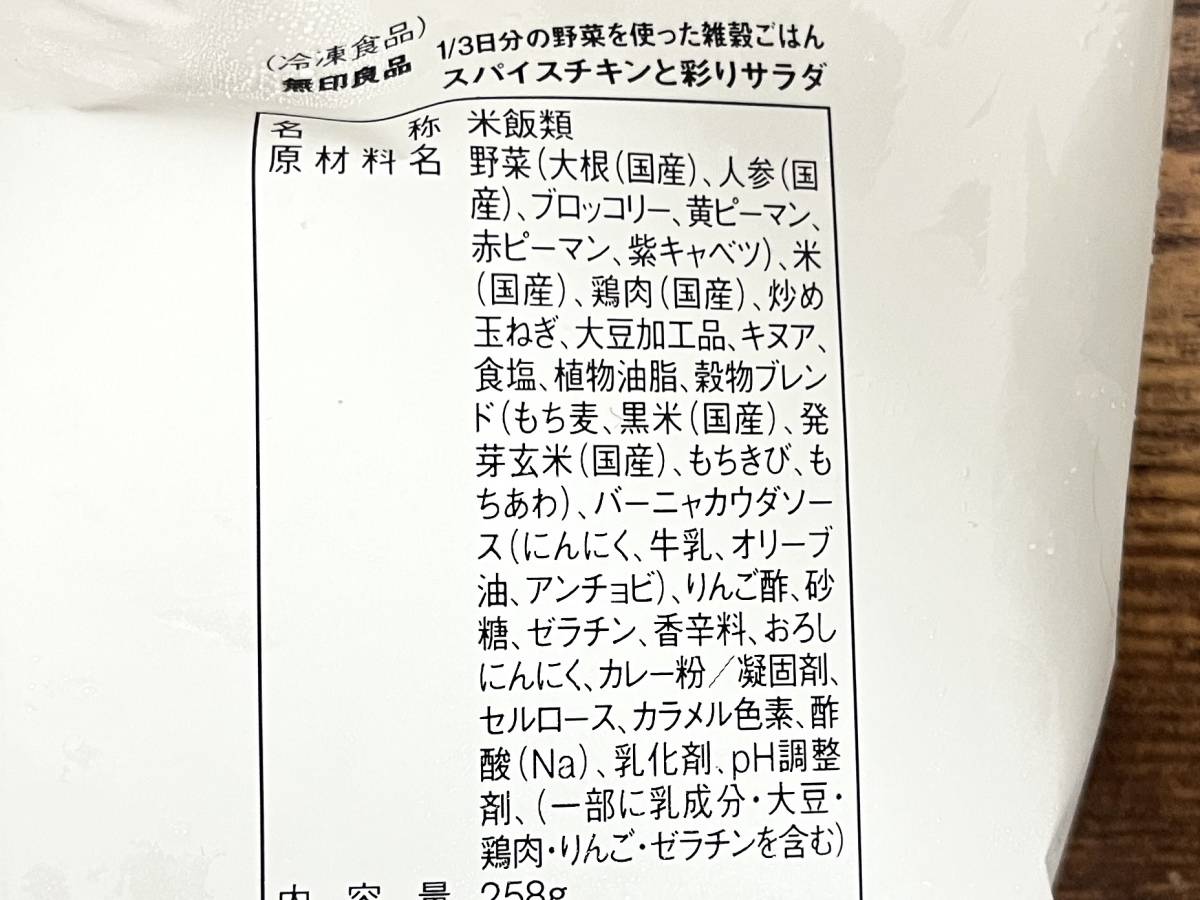 (冷凍食品) 1/3日分の野菜を使った雑穀ごはん
無印良品 スパイスチキンと彩りサラダ
名称 米飯類
原材料名 野菜(大根(国産)、人参(国
産)、ブロッコリー、黄ピーマン、
赤ピーマン、紫キャベツ)、米
(国産)、鶏肉(国産)、炒め
玉ねぎ、大豆加工品、キヌア、
食塩、植物油脂、穀物ブレン
ド(もち麦、黒米(国産)、発
芽玄米(国産)、もちきび、も
ちあわ)、バーニャカウダソー
ス(にんにく、牛乳、オリーブ
油、アンチョビ)、りんご酢、砂
糖、ゼラチン、香辛料、おろし
にんにく、カレー粉/凝固剤、
セルロース、カラメル色素、酢
酸(Na)、乳化剤、pH調整
剤、(一部に乳成分・大豆・
鶏肉・りんご・ゼラチンを含む)
内容量 258g